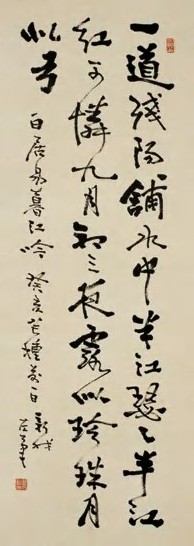 一道残陽舖水中半江瑟々半江
紅可憐九月初三夜露似珍珠月
似弓
白居易暮江吟 癸亥芒種前一日 新我
左筆